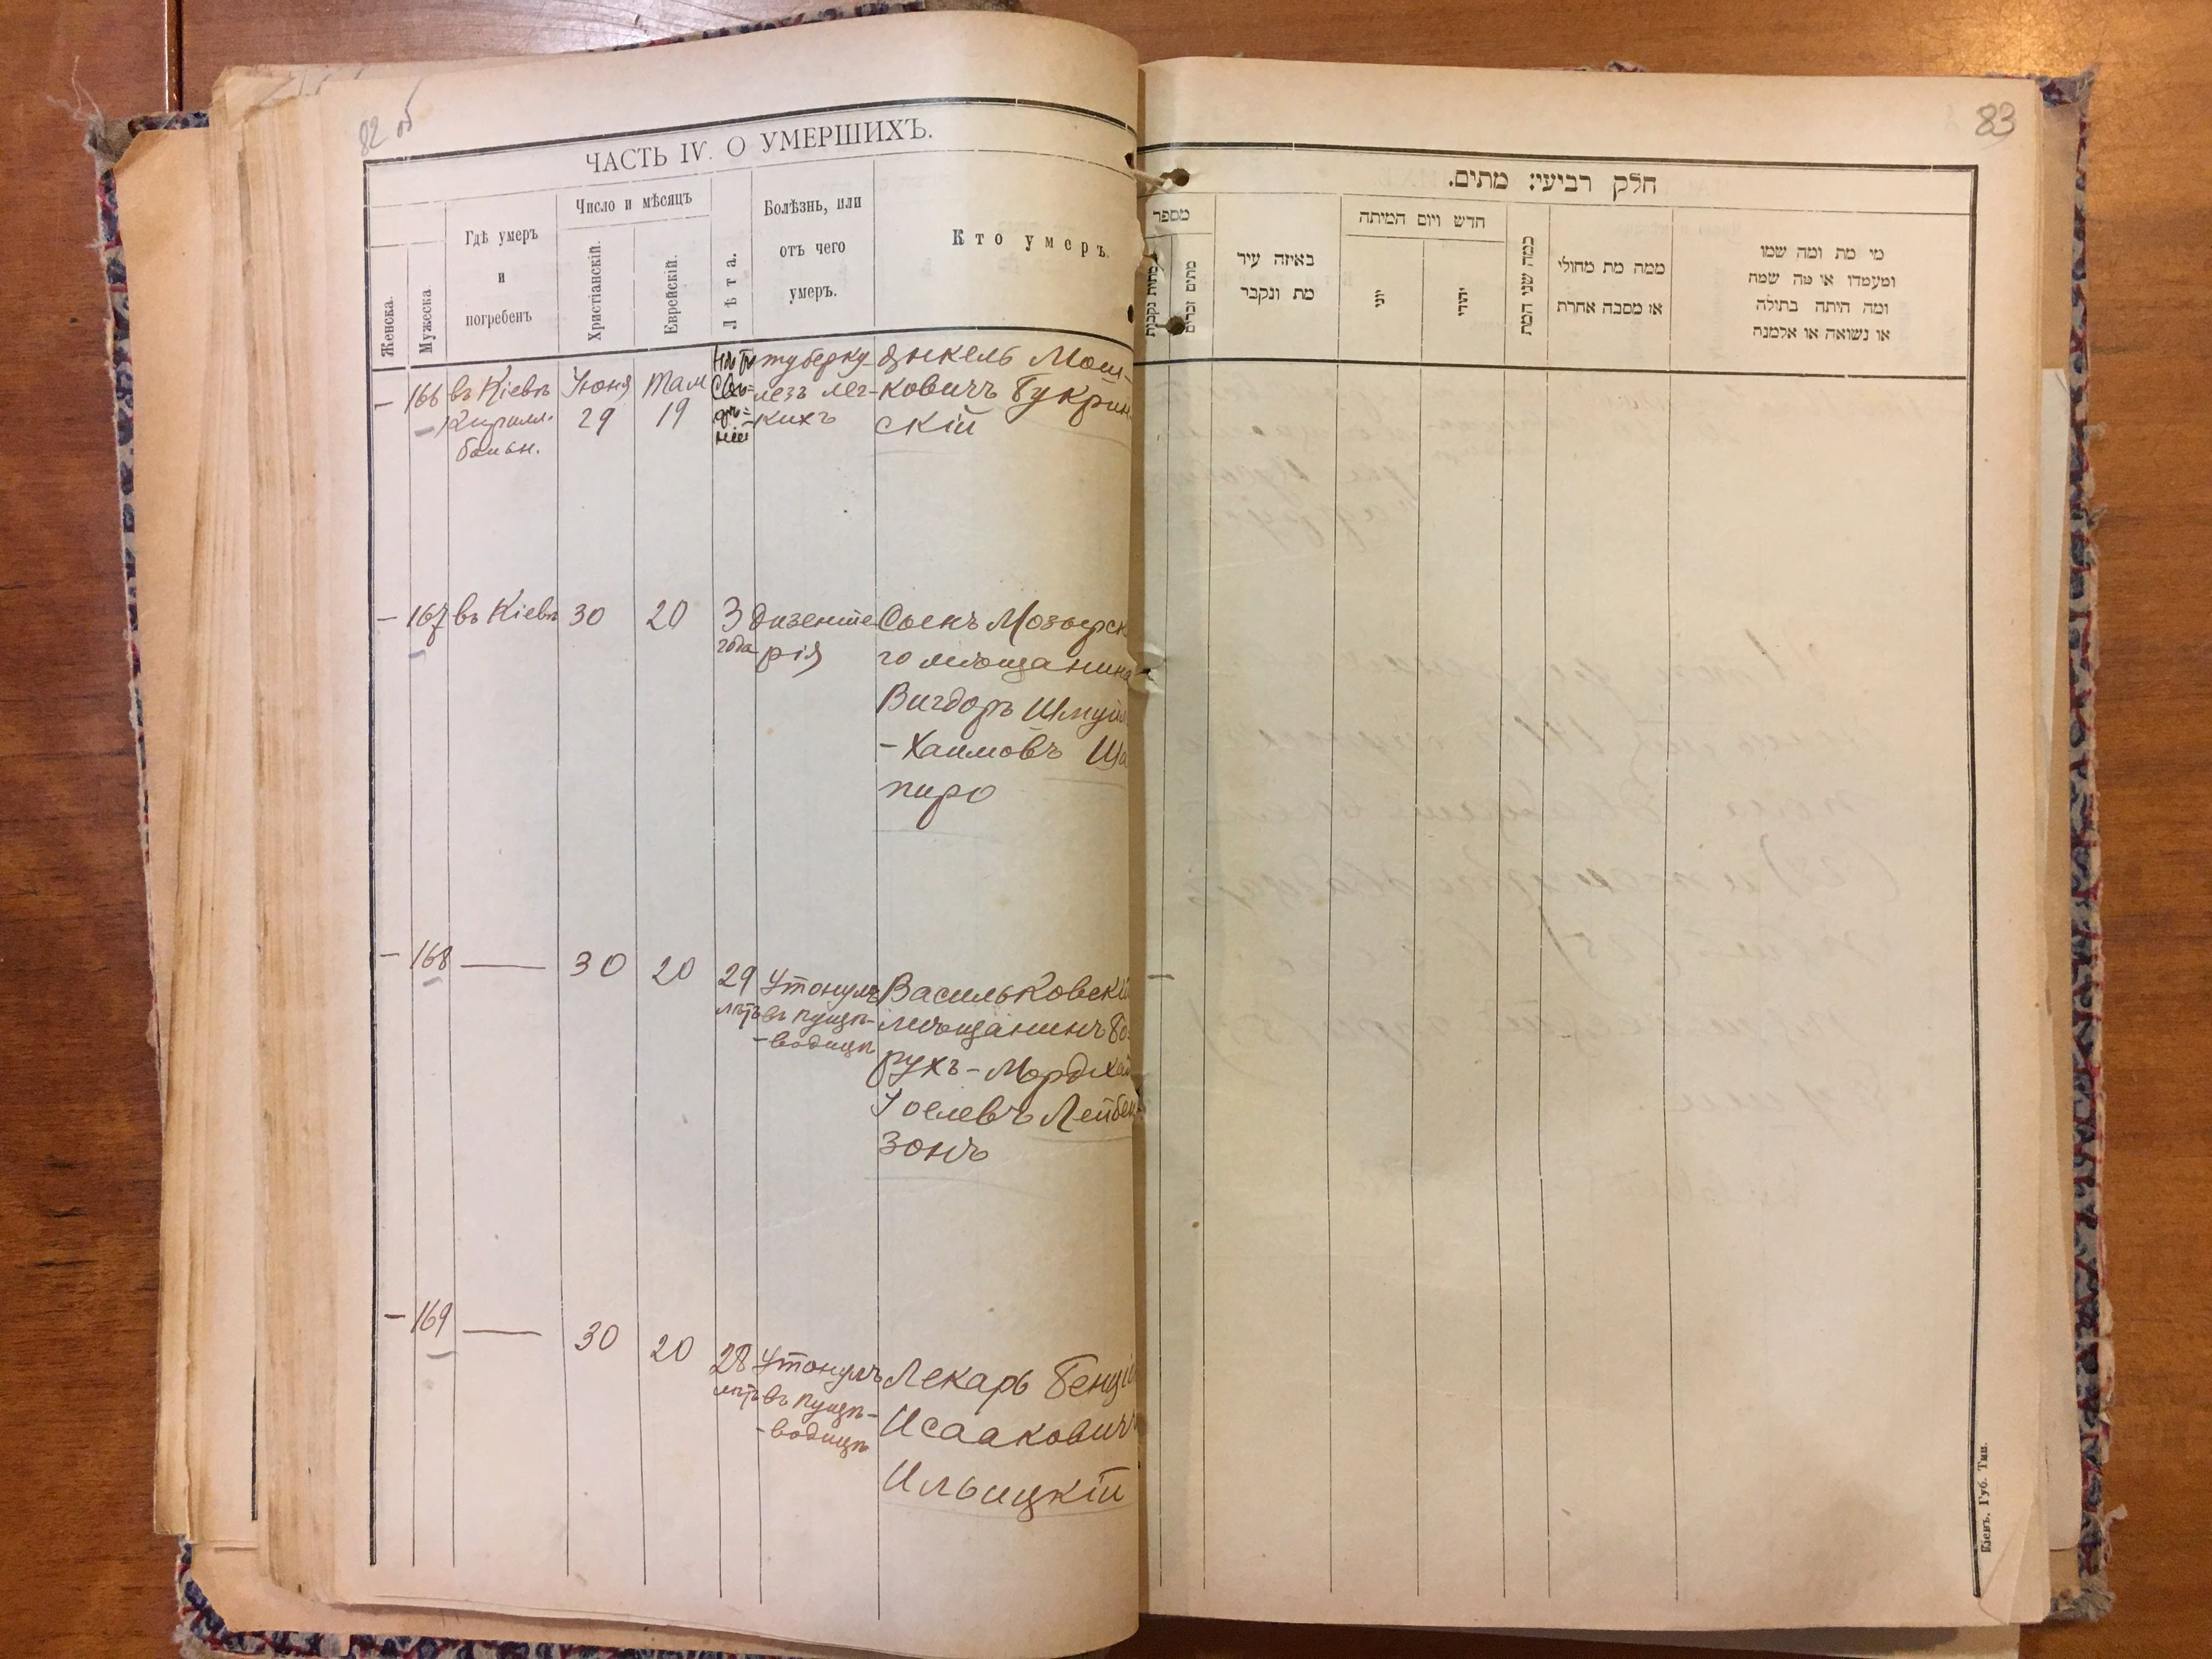 82 об
ЧАСТЬ IV. О УМЕРШИХЪ.
Женска.
Мужеска
Гдѣ умеръ
и
погребенъ
Число и мѣсяцъ
Христіанскій.
Еврейскій.
Лѣта.
Болѣзнь, или
отъ чего
умеръ.
Кто умеръ.
— 166
въ Кіевѣ
Кирилл.
больн.
Іюня
29
Там
19
туберку-
лезъ лег-
кихъ
Янкель Мош-
ковичъ Букрин
скій
— 167
въ Кіевѣ
30
20
3
года
Дизенте
рія
Сынъ Мозырск
го мѣщанина
Вигдоръ Шмуйл
-Хаимовъ Ша
пиро
— 168
30
20
29
лѣтъ
Утонулъ
въ Пущѣ-
-Водицѣ
Васильковскій
мѣщанинъ Бо-
рухъ-Мордхай
Іоселевъ Лейбен
зонъ
— 169
30
20
28
лѣтъ
Утонулъ
въ Пущѣ-
-Водицѣ
Лекарь Бенціо
Исааковичъ
Ильицкій
83
חלק רביעי: מתים.
מספר
מתות נקבות
מתים זכרים
באיזה עיר
מת ונקבר
חדש ויום המיתה
יוני
יהודי
כמה שני המת
ממה מת מחולי
או מסבה אחרת
מי מת ומה שמו
ומעמדו או מה שמה
ומה היתה בתולה
או נשואה או אלמנה
Кіевъ. Губ. Тип.